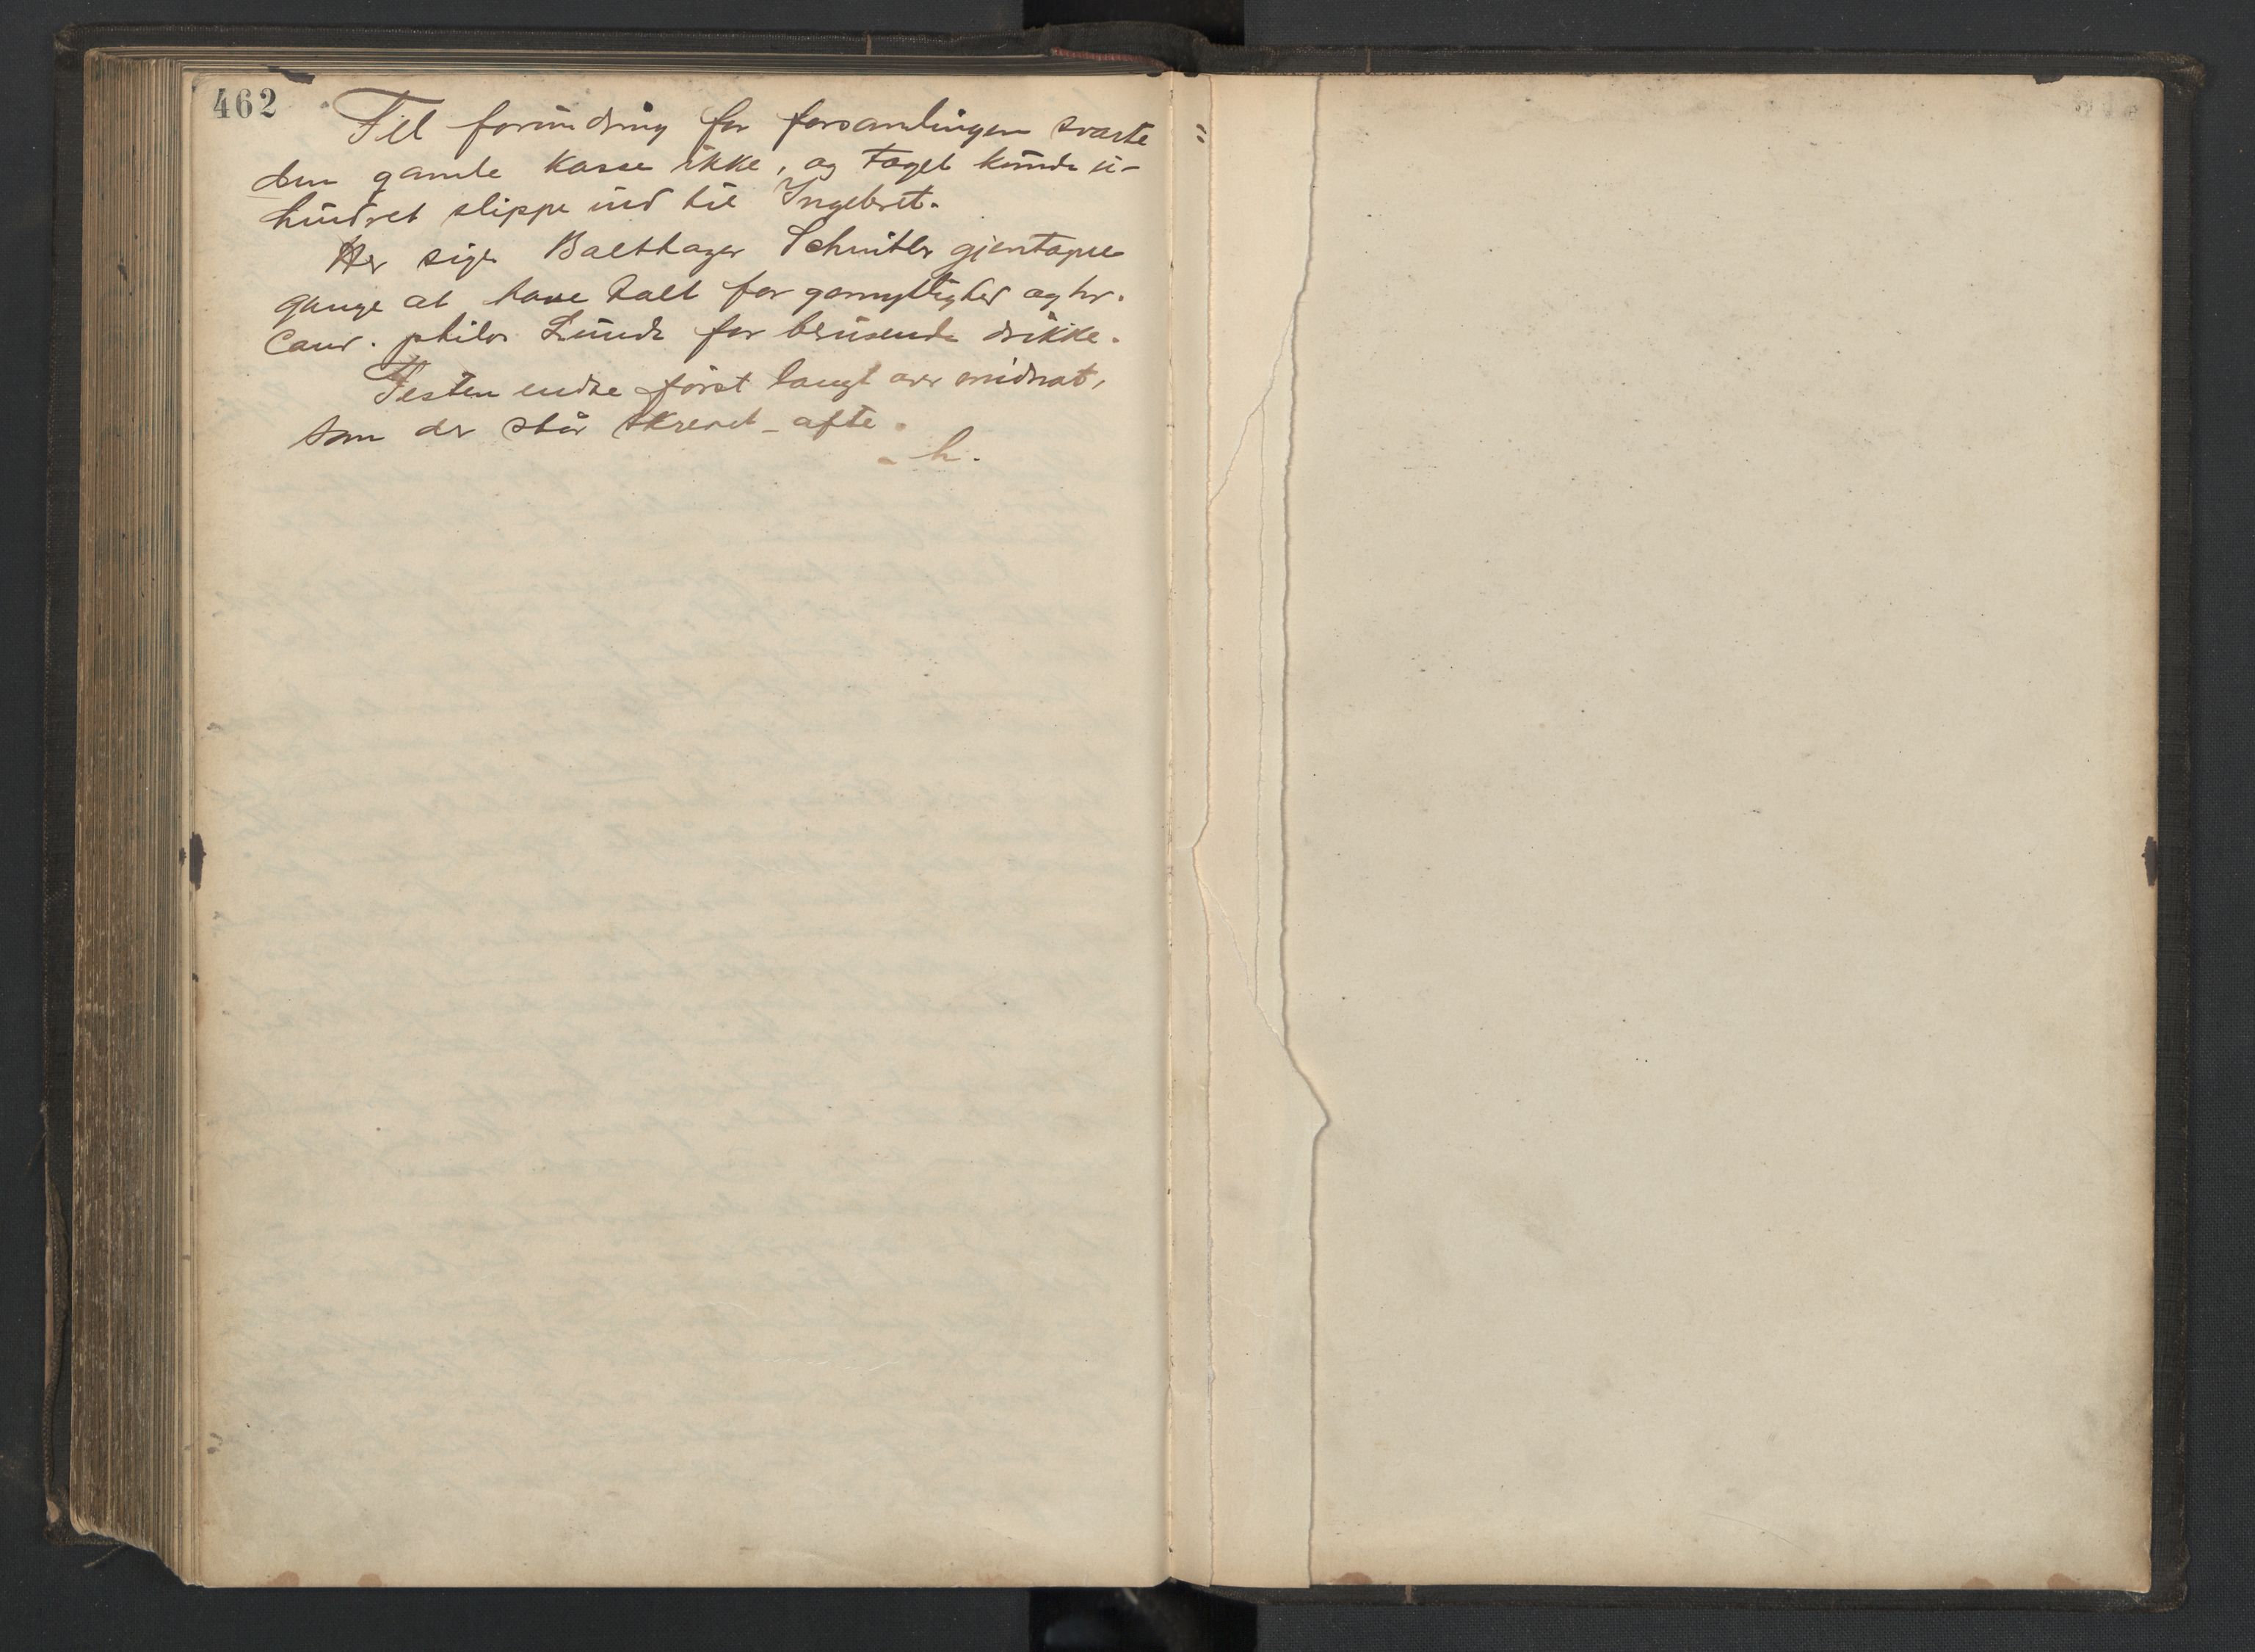 462
Til forundring for forsamlingen svarte
den gamle kasse ikke, og toget kunde u-
hindret slippe ind til Ingebret.
Her siges Balthazar Schnitler gjentagne
gange at have talt for gemytlighed og hr.
Cand. philos. Lunde for berusende drikke.
Festen endte först langt over midnat,
som der står skrevet – ofte.
– h.